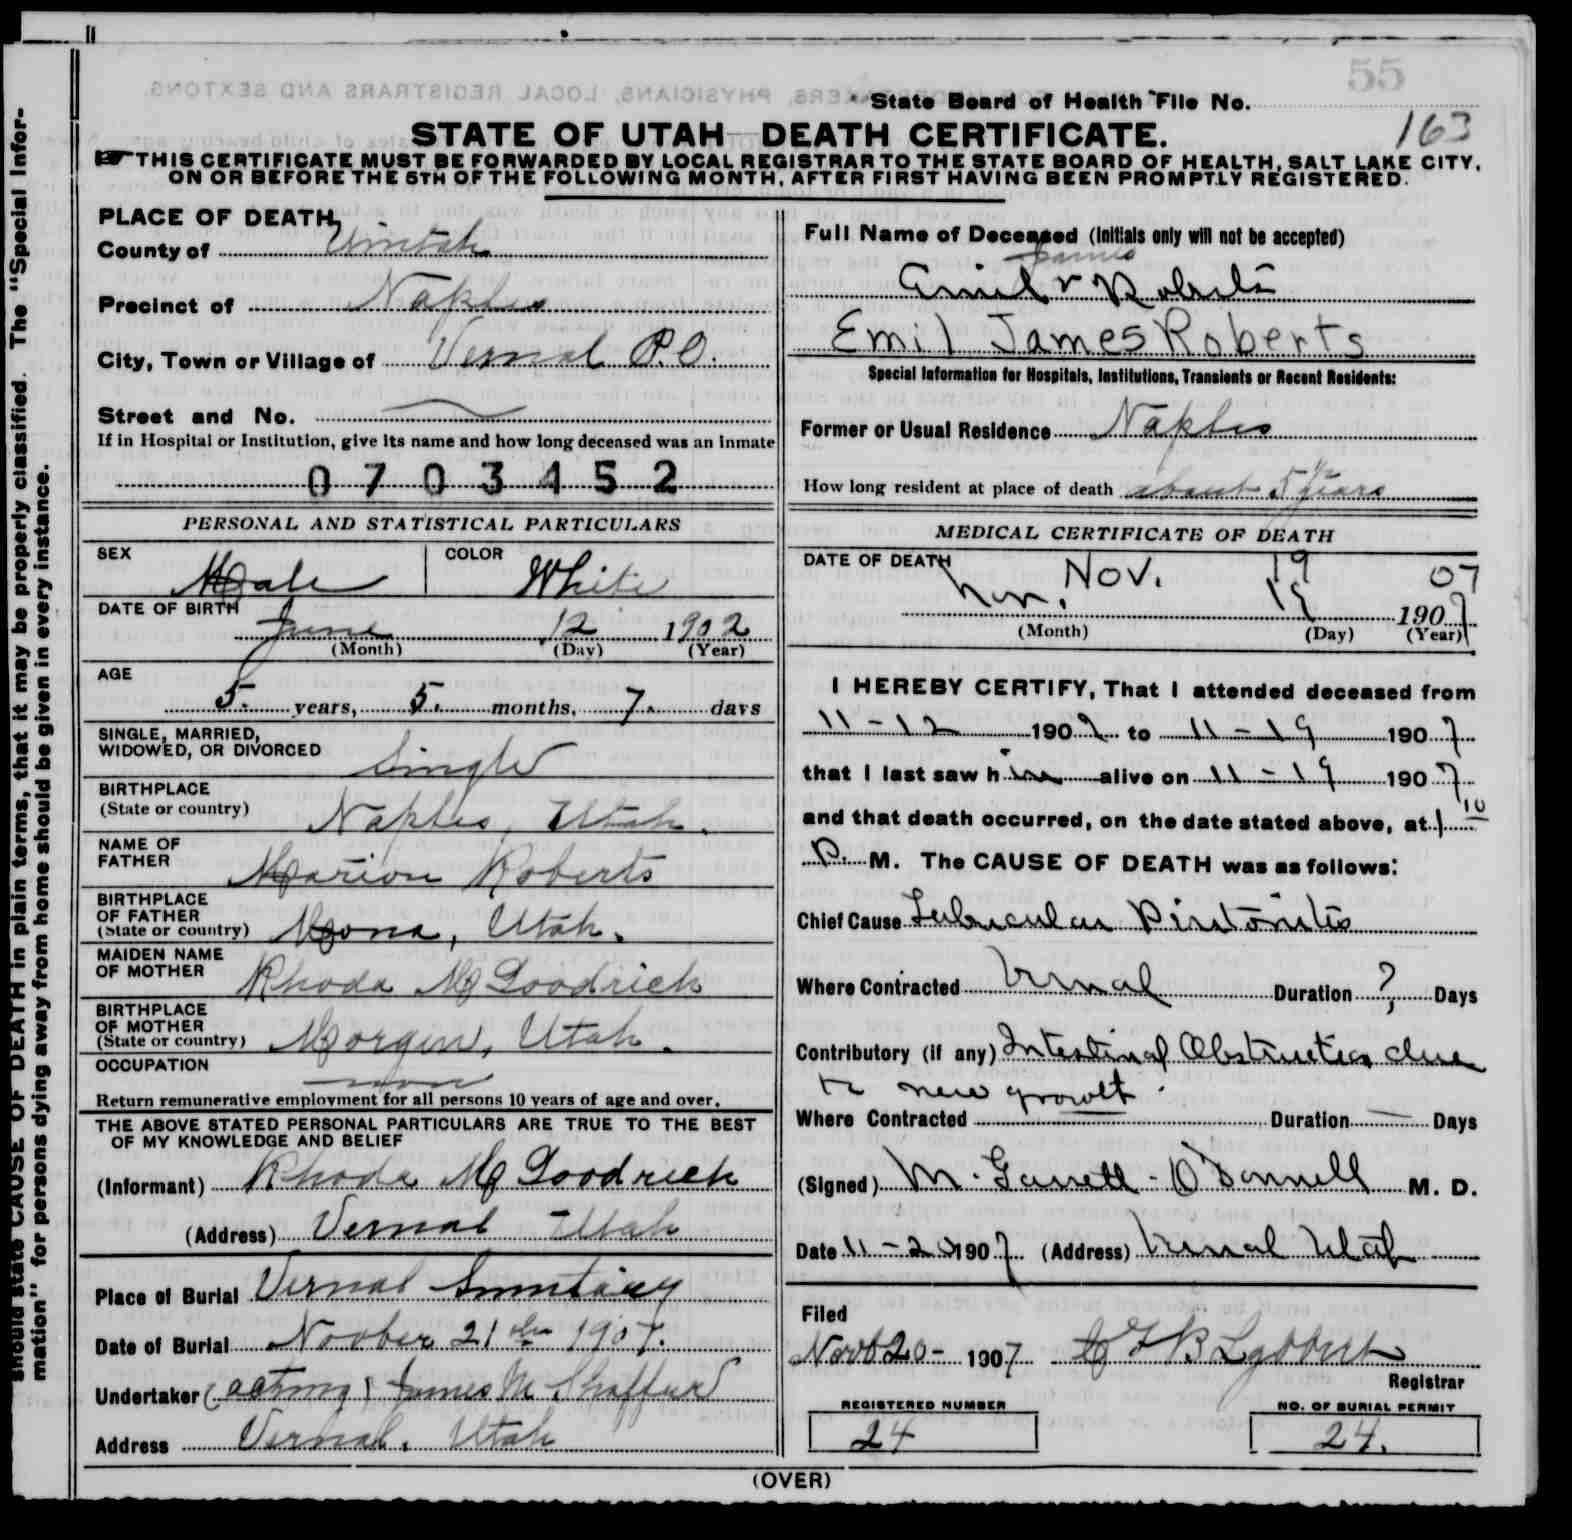 55
State Board of Health File No.
163
STATE OF UTAH—DEATH CERTIFICATE.
THIS CERTIFICATE MUST BE FORWARDED BY LOCAL REGISTRAR TO THE STATE BOARD OF HEALTH, SALT LAKE CITY,
ON OR BEFORE THE 5TH OF THE FOLLOWING MONTH, AFTER FIRST HAVING BEEN PROMPTLY REGISTERED.
should state CAUSE OF DEATH in plain terms, that it may be properly classified. The "Special Infor-
mation" for persons dying away from home should be given in every instance.
PLACE OF DEATH
County of Uintah
Precinct of Naples
City, Town or Village of Vernal P.O.
Street and No.
If in Hospital or Institution, give its name and how long deceased was an inmate
0703452
PERSONAL AND STATISTICAL PARTICULARS
SEX Male COLOR White
DATE OF BIRTH
June 12 1902
(Month) (Day) (Year)
AGE
5. years, 5. months, 7. days
SINGLE, MARRIED,
WIDOWED, OR DIVORCED Single
BIRTHPLACE
(State or country) Naples, Utah.
NAME OF
FATHER Marion Roberts
BIRTHPLACE
OF FATHER
(State or country) Mona, Utah.
MAIDEN NAME
OF MOTHER Rhoda M Goodrich
BIRTHPLACE
OF MOTHER
(State or country) Morgan, Utah.
OCCUPATION
non
Return remunerative employment for all persons 10 years of age and over.
THE ABOVE STATED PERSONAL PARTICULARS ARE TRUE TO THE BEST
OF MY KNOWLEDGE AND BELIEF
(Informant) Rhoda M Goodrich
(Address) Vernal Utah
Place of Burial Vernal
Date of Burial 21 1907.
Undertaker (acting) James M Shaffer
Address Vernal, Utah
Full Name of Deceased (Initials only will not be accepted)
James
Emil Roberts
Emil James Roberts
Special Information for Hospitals, Institutions, Transients or Recent Residents:
Former or Usual Residence Naples
How long resident at place of death about 5 1/2 years
MEDICAL CERTIFICATE OF DEATH
DATE OF DEATH Nov. 19 07
Nov. 19 1907
(Month) (Day) (Year)
I HEREBY CERTIFY, That I attended deceased from
11-12 1907 to 11-19 1907
that I last saw him alive on 11-19 1907
and that death occurred, on the date stated above, at 1 10
P. M. The CAUSE OF DEATH was as follows:
Chief Cause Tubercular Peritonitis
Where Contracted Vernal Duration ? Days
Contributory (if any) Intestinal Obstruction due
to new growth.
Where Contracted — Duration — Days
(Signed) M. Garrett O'Donnell M. D.
Date 11-20 1907 (Address) Vernal Utah
Filed
20- 1907
Registrar
REGISTERED NUMBER
24
NO. OF BURIAL PERMIT
24.
(OVER)